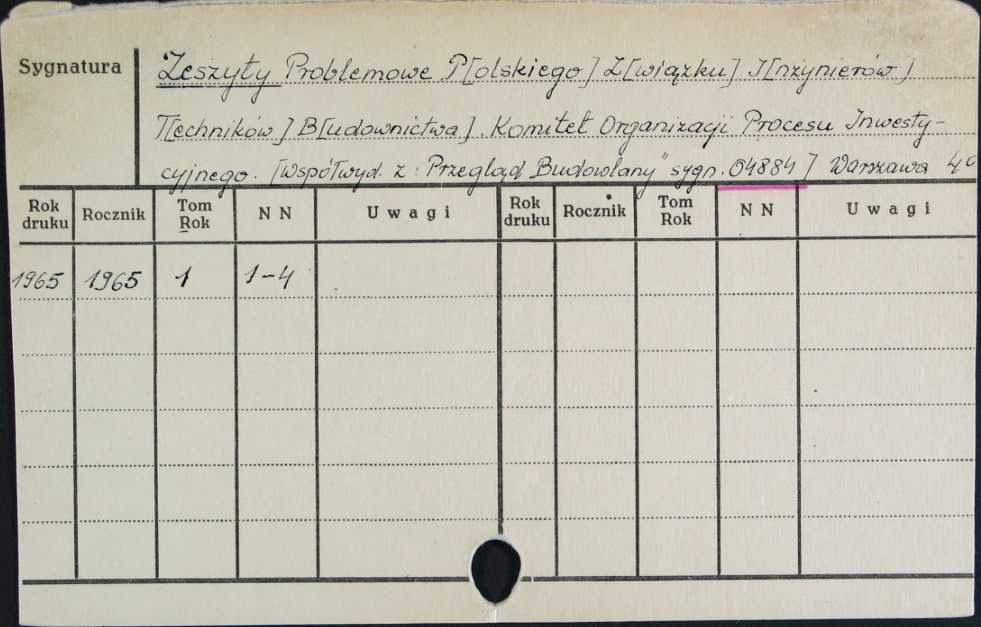 Sygnatura
Zeszyty Problemowe P[olskiego] Z[wiązku] I[nżynierów]
T[echników] B[udownictwa]. Komitet Organizacji Procesu Inwesty-
cyjnego. [Współwyd. z: Przegląd Budowlany" sygn. 04884] Warszawa 4°
Rok druku Rocznik Tom Rok N N Uwagi Rok druku Rocznik Tom Rok N N Uwagi
1965 1965 1 1-4